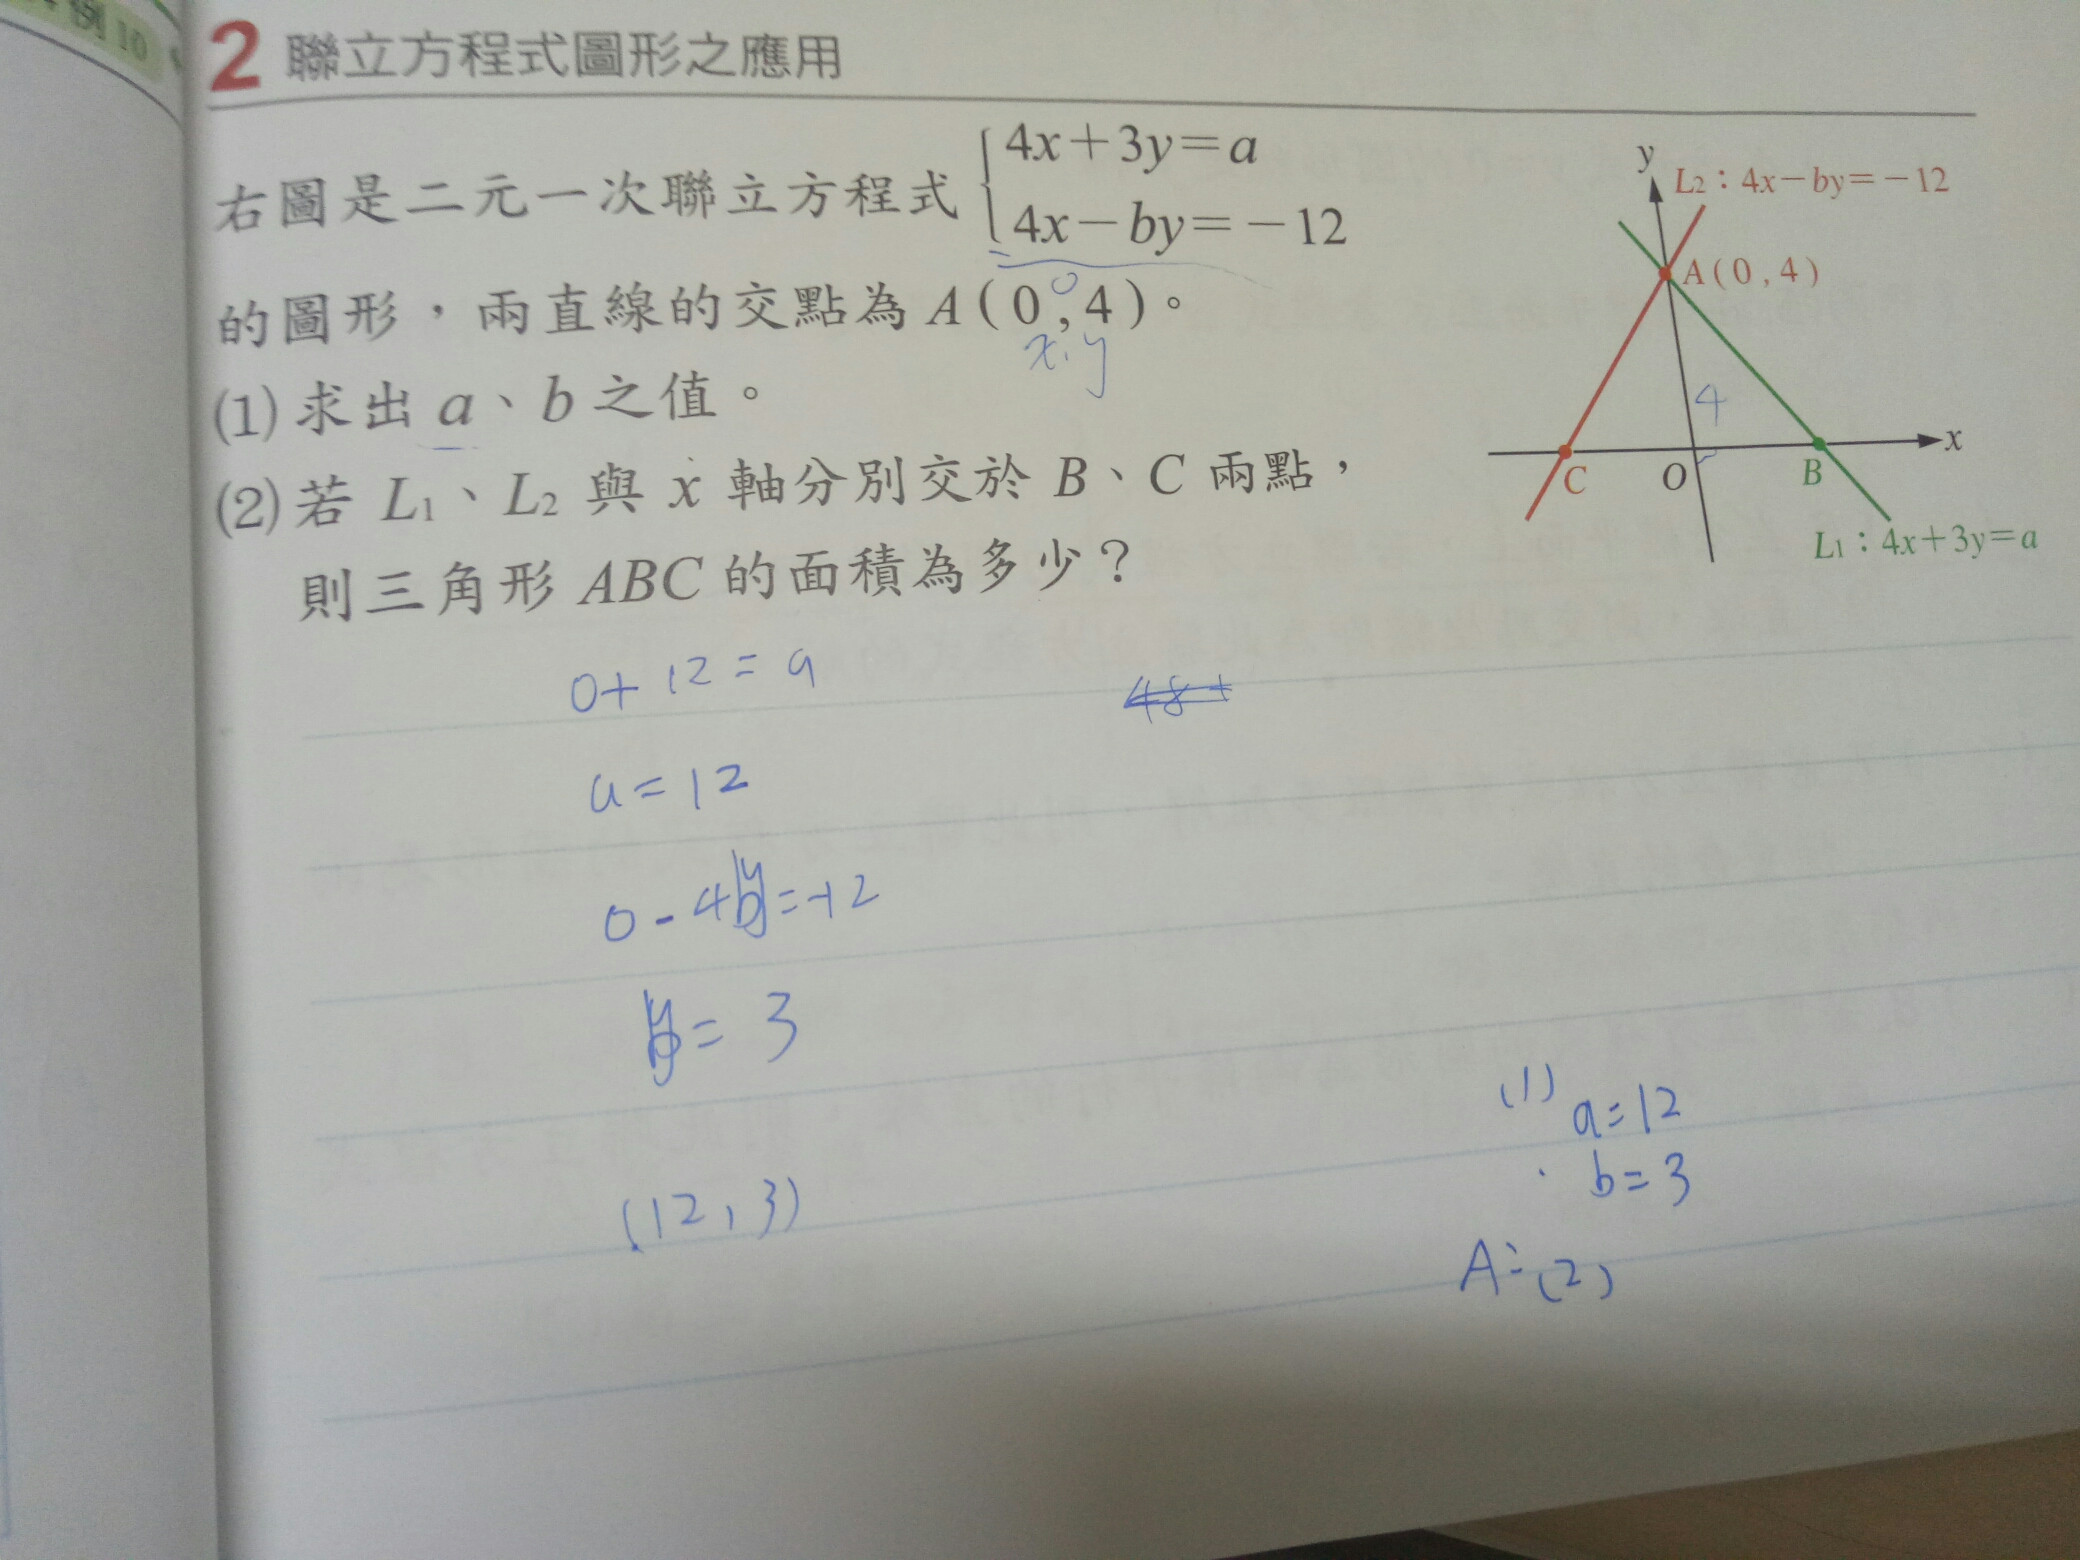 例10
2 聯立方程式圖形之應用
4x+3y=a
右圖是二元一次聯立方程式
4x-by=-12
0
的圖形,兩直線的交點為A(0,4)。
x,y
(1)求出a、b之值。
(2)若L1、L2與x軸分別交於B、C兩點,
則三角形ABC的面積為多少?
y
L2:4x-by=-12
A(0,4)
4
C O B x
L1:4x+3y=a
0+12=a
a=12
0-4b=-12
b=3
(12,3)
(1) a=12
b=3
A:(2)